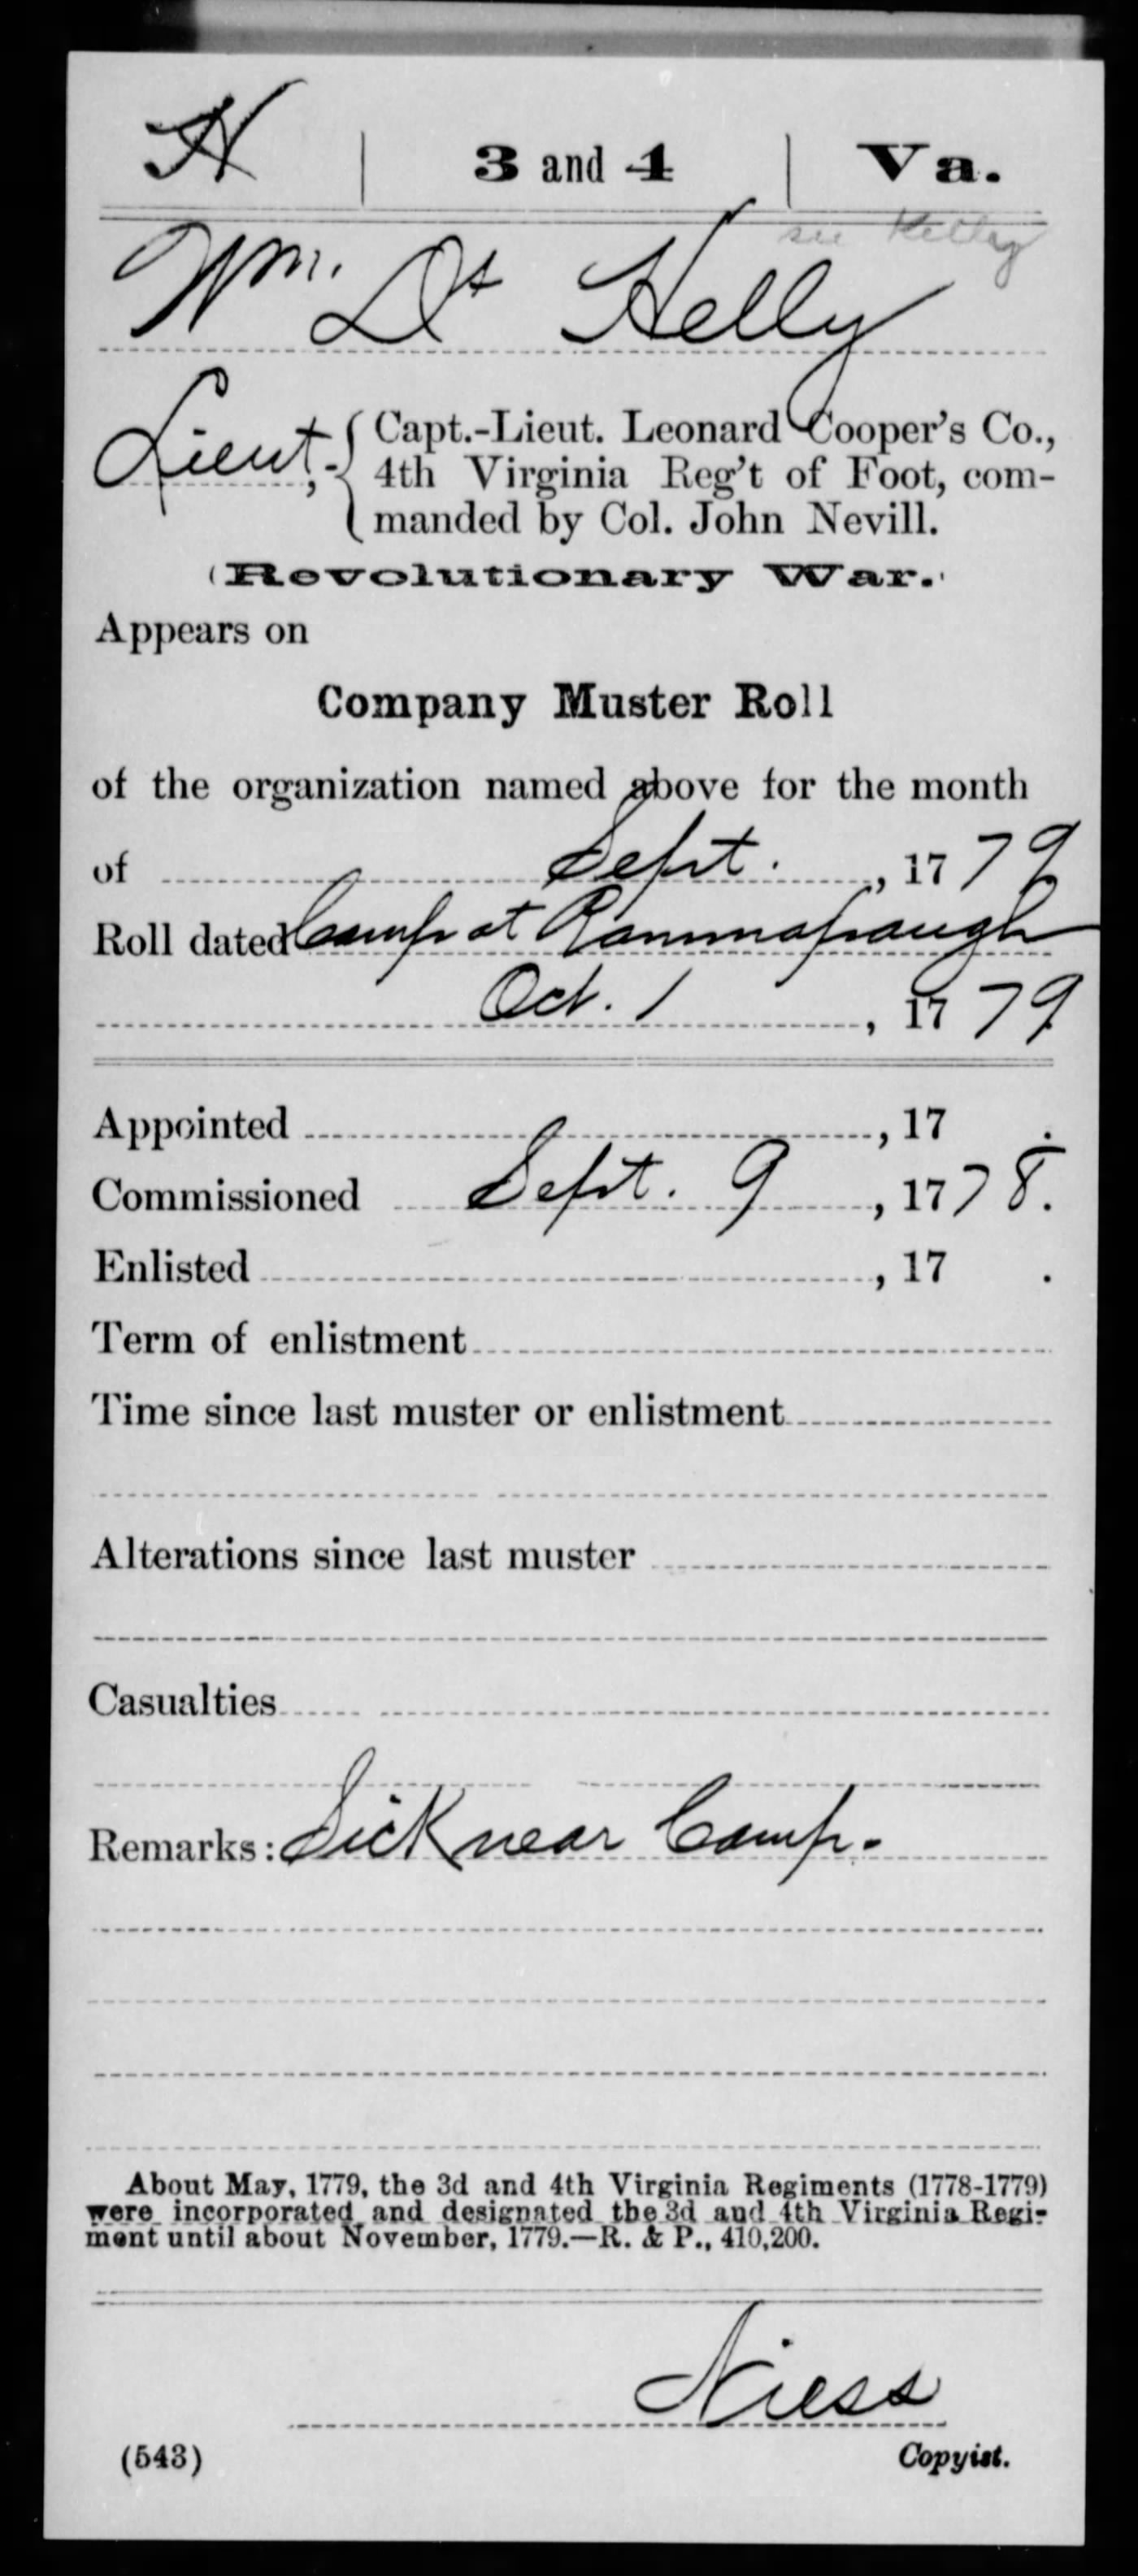 H | 3 and 4 | Va.
see Kelly
Wm. Dt Helly
Lieut, { Capt.-Lieut. Leonard Cooper's Co.,
4th Virginia Reg't of Foot, com-
manded by Col. John Nevill.
(Revolutionary War.)
Appears on
Company Muster Roll
of the organization named above for the month
of Sept. , 1779
Roll dated Camp at Rammapaugh
Oct. 1 , 1779.
Appointed , 17 .
Commissioned Sept. 9 , 1778.
Enlisted , 17 .
Term of enlistment
Time since last muster or enlistment
Alterations since last muster
Casualties
Remarks: Sick near Camp.
About May, 1779, the 3d and 4th Virginia Regiments (1778-1779)
were incorporated and designated the 3d and 4th Virginia Regi-
ment until about November, 1779.—R. & P., 410,200.
Niess
(543) Copyist.